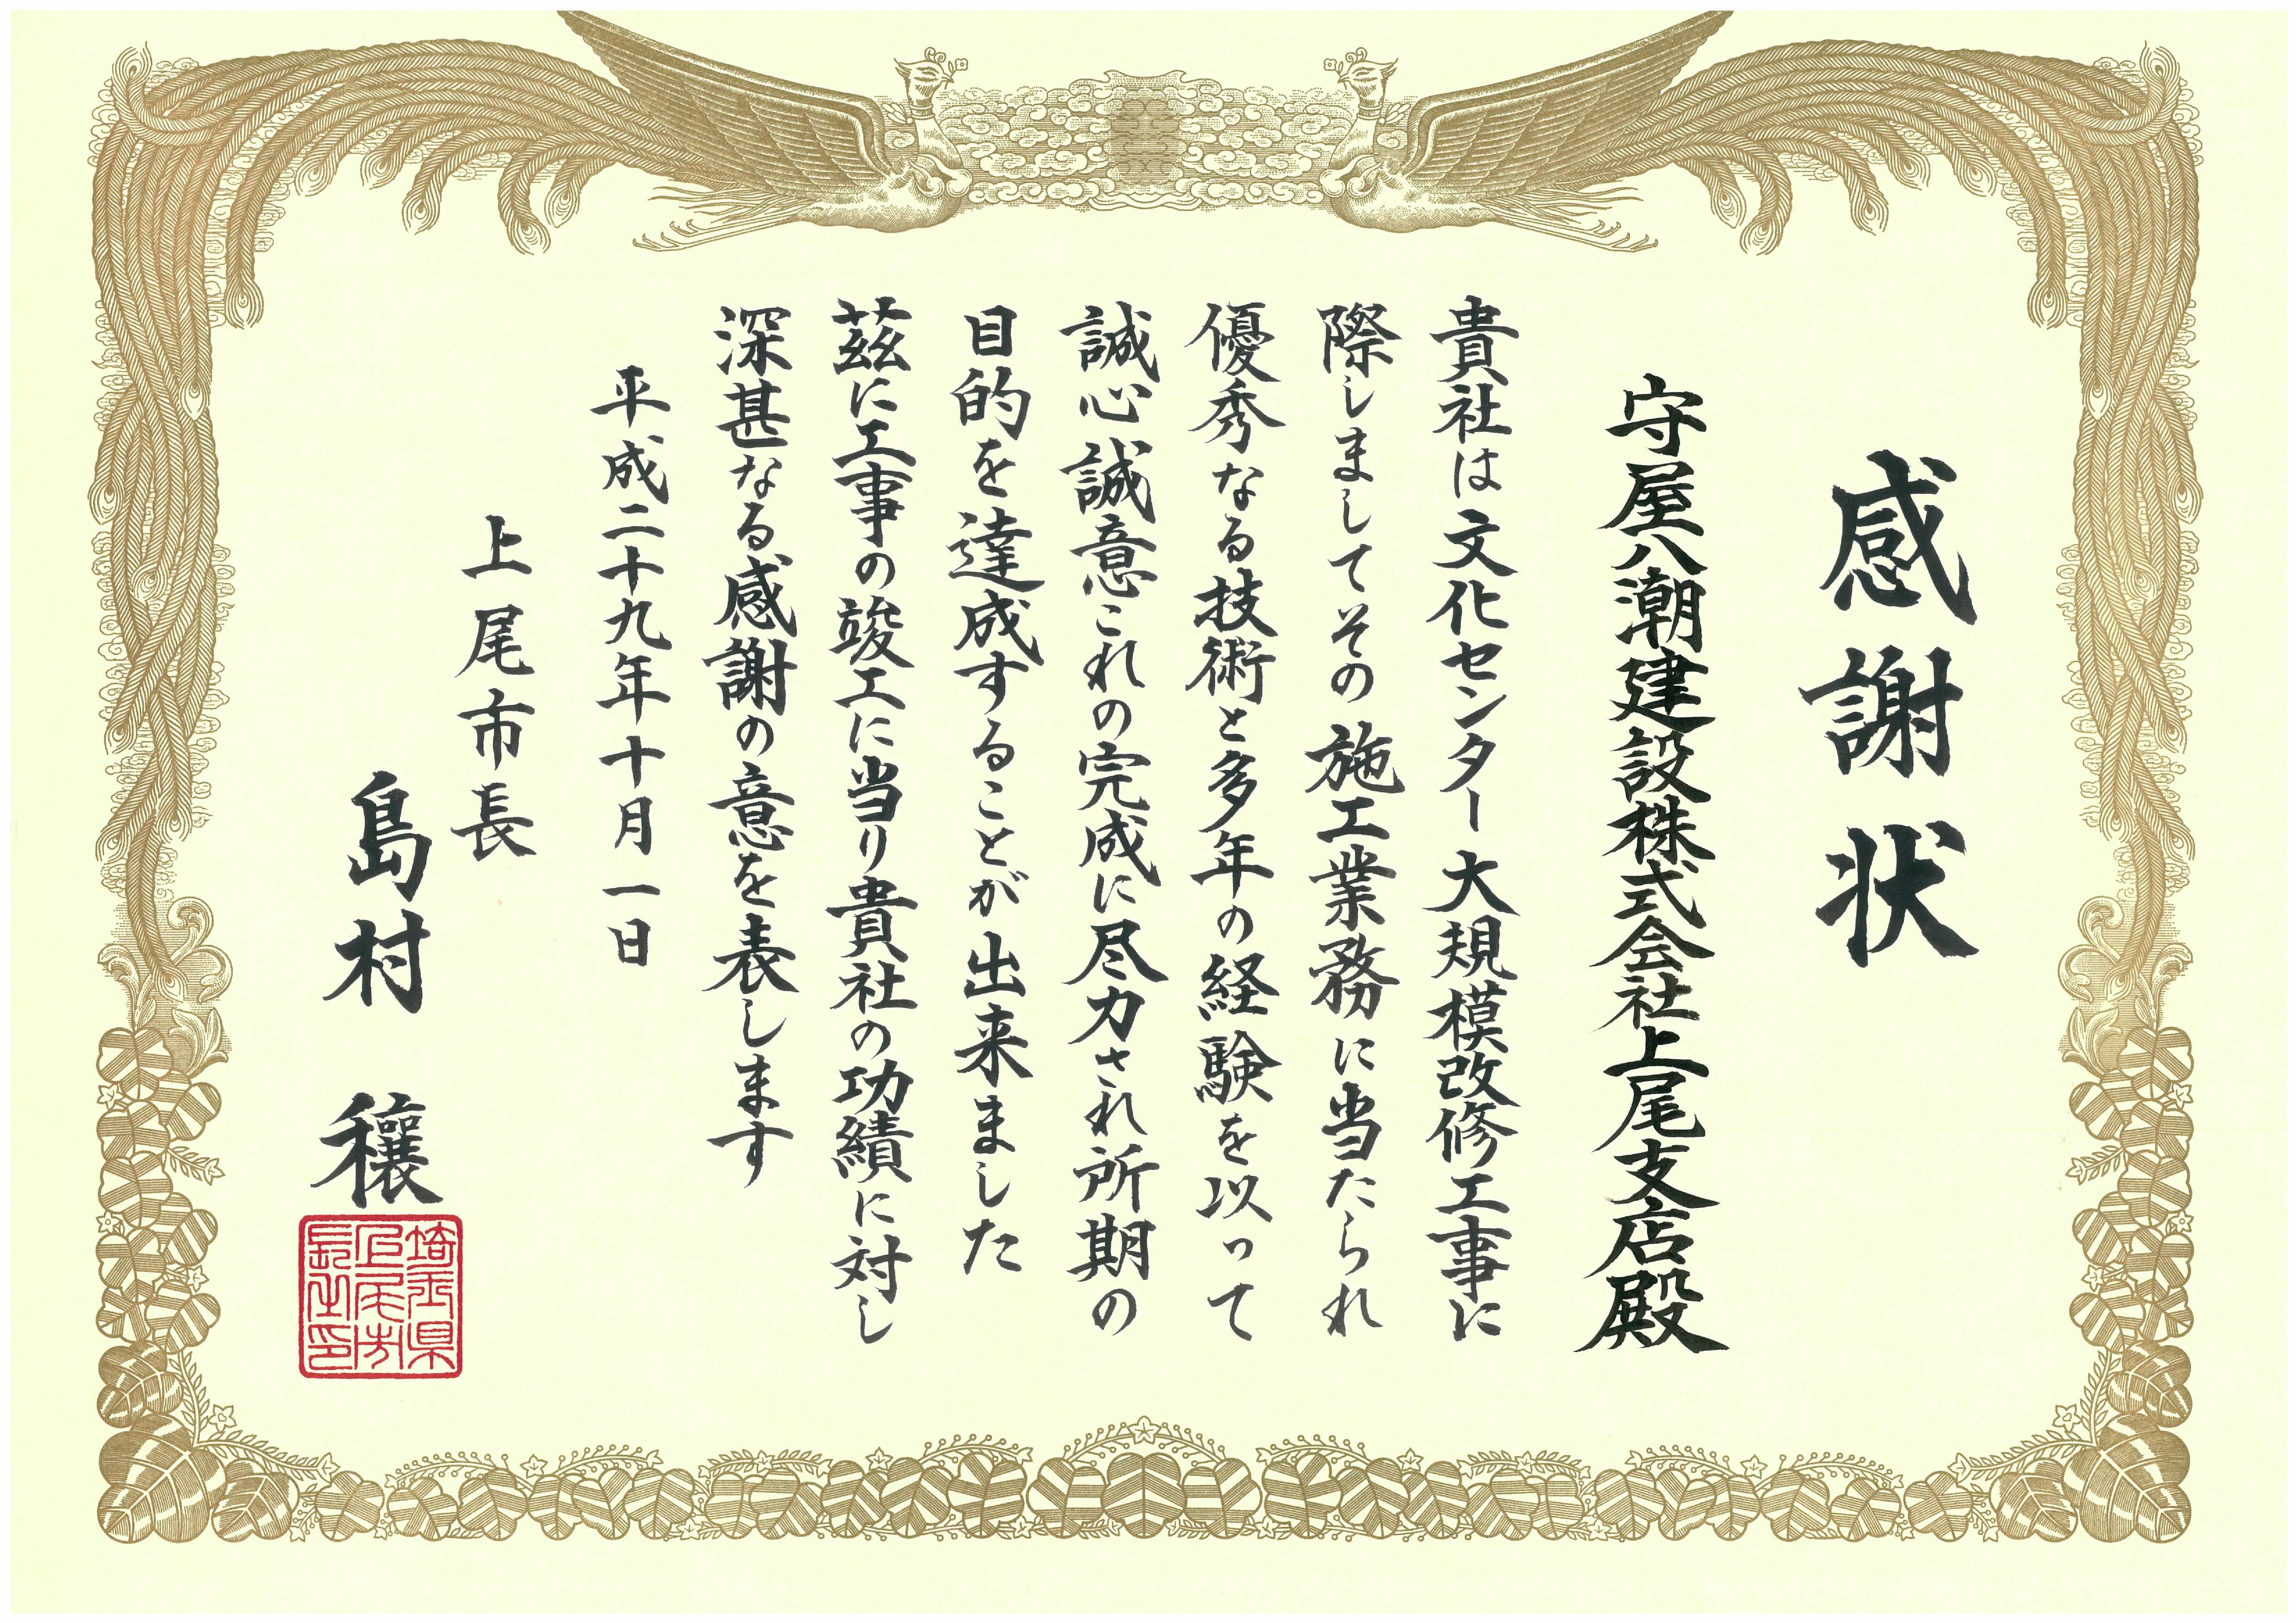 感謝状
守屋八潮建設株式会社上尾支店殿
貴社は文化センター大規模改修工事に
際しましてその施工業務に当たられ
優秀なる技術と多年の経験を以って
誠心誠意これの完成に尽力され所期の
目的を達成することが出来ました
茲に工事の竣工に当り貴社の功績に対し
深甚なる感謝の意を表します
平成二十九年十月一日
上尾市長
島村 穰
埼玉県
上尾市
長之印